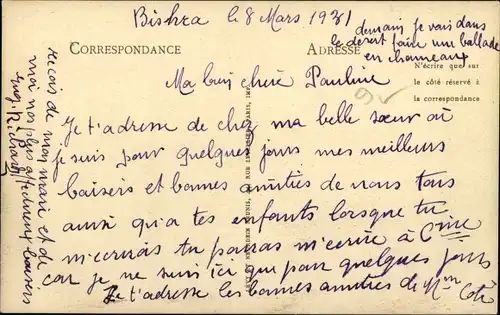 Biskra le 8 Mars 1931
demain je vais dans
le désert faire une ballade
en chameaux
CORRESPONDANCE
ADRESSE
N'écrire que sur
le côté réservé à
la correspondance
Ma bien chère Pauline
Je t'adresse de chez ma belle sœur où
je suis pour quelques jours mes meilleurs
baisers et bonnes amitiés de nous tous
ainsi qu'a tes enfants lorsque tu
m'ecriras tu pourras m'ecrire à
car je ne suis ici que pour quelques jours
Je t'adresse les bonnes amitiés de Mme
reçois de mon mari et de
moi nos plus affectueux baisers